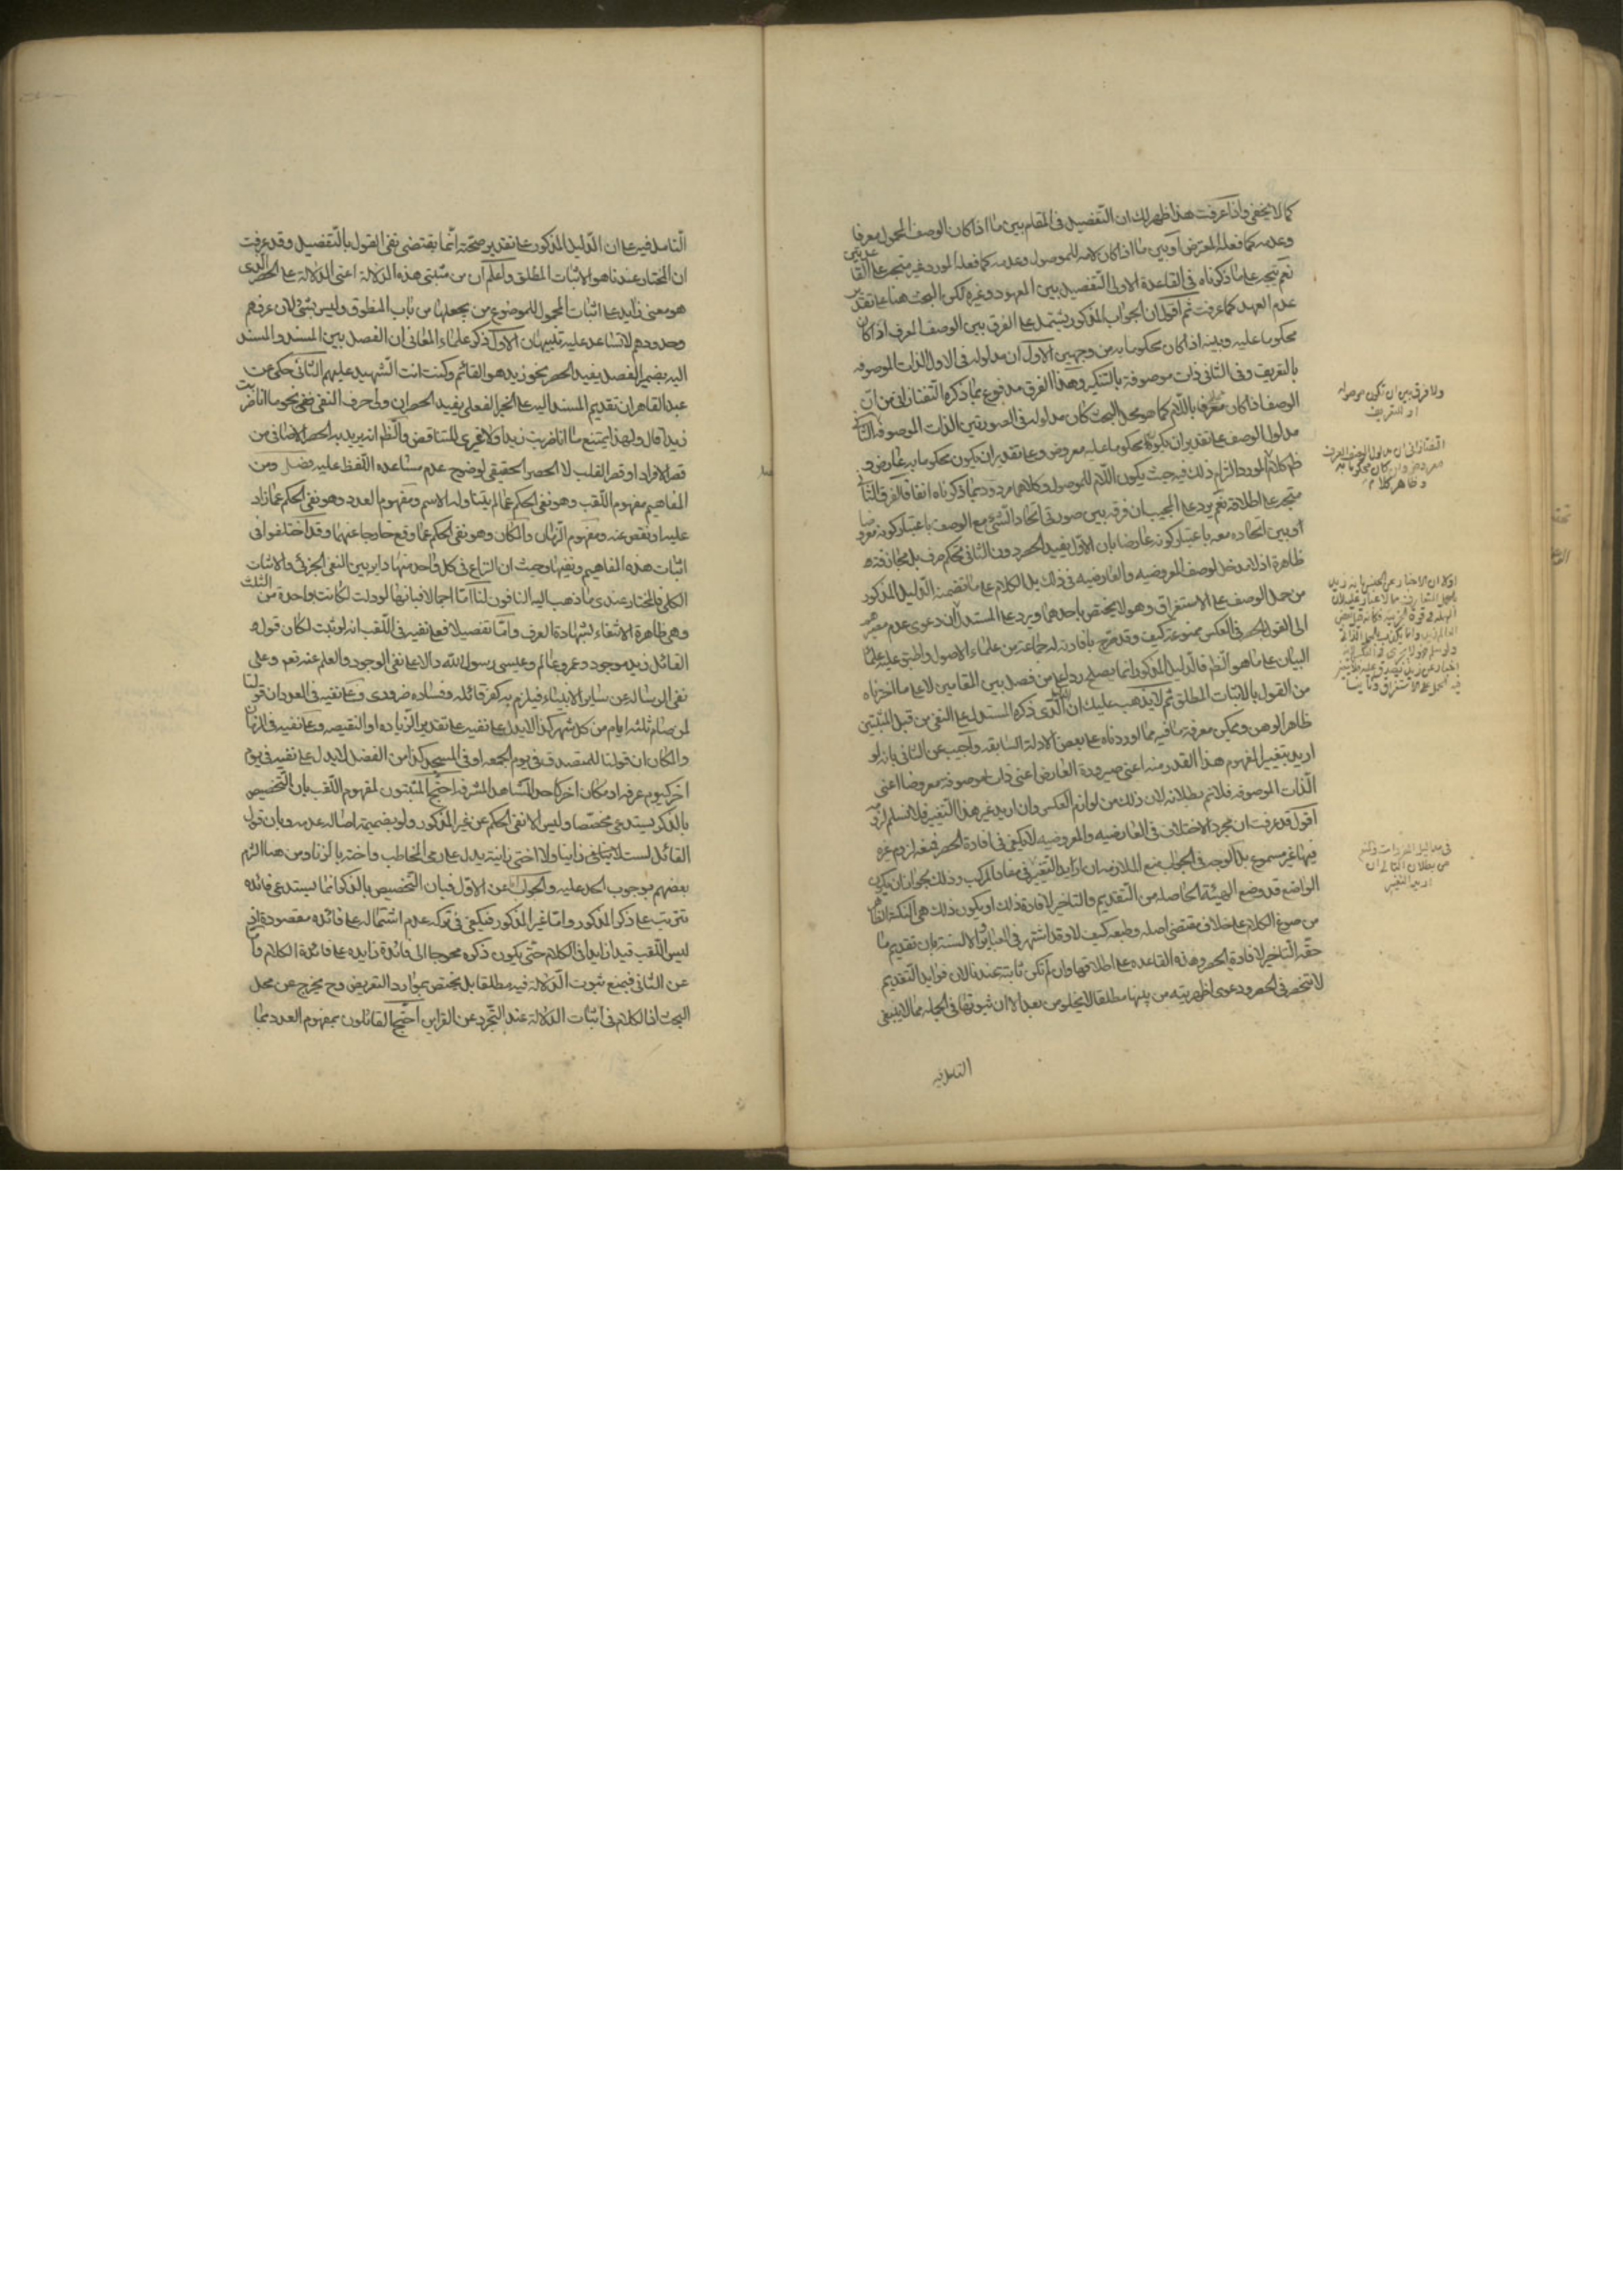 كما لا يخفى واذا عرفت هذا ظهر لك ان التفصيل فى المقام بين ما اذا كان الوصف المحمول معرفا
وعدمه كما فعله المعترض او بين ما اذا كان لامه للموصول وعدمه كما فعله المورد غير متجه على
نعم يتجه على ما ذكرناه فى القاعدة الاولى التفصيل بين المعهود وغيره لكن البحث هنا على تقدير
عدم العهد كما عرفت ثم اقول ان الجواب المذكور يشتمل على الفرق بين الوصف المعرف اذا كان
محكوما عليه وبينه اذا كان محكوما به من وجهين الاول ان مدلوله فى الاول الذات الموصوفه
بالتعريف وفى الثانى ذات موصوفة بالتنكير وهذا الفرق مدفوع بما ذكره التفتازانى من ان
الوصف اذا كان معرفا باللام كما هو محل البحث كان مدلوله فى الصورتين الذات الموصوفه
مدلول الوصف على تقدير ان يكون محكوما عليه معروض وعلى تقدير ان يكون محكوما به عارض و
كلام المورد التزام ذلك فيه حيث يكون اللام للموصول وكلاهما مردود بما ذكرناه انفا فالفرق
متجه على اطلاقه نعم يرد على المجيب ان فرقه بين صورتى اتحاد الشئ مع الوصف باعتبار كونه
او بين اتحاده معه باعتبار كونه عارضا بان الاول يفيد الحصر دون الثانى تحكم صرف بل مجازفة
ظاهرة اذ لا مدخل لوصف المعروضيه والعارضيه فى ذلك بل الكلام على ما تضمنه الدليل المذكور
من حمل الوصف على الاستغراق وهو لا يختص باحدهما ويرد على المستدل ان دعوى عدم
الى القول بالحصر فى العكس ممنوعة كيف وقد صرح بافادته له جماعة من علماء الاصول واطبق عليه علماء
البيان على ما هو الظاهر فالدليل المذكور انما يصلح ردا على من فصل بين المقامين لا على ما اخترناه
من القول بالاثبات المطلق ثم لا يذهب عليك ان الذى ذكره المستدل على النفى من قبل المثبتين
ظاهر الوهن ويمكن معرفة ما فيه مما اوردناه على بعض الادلة السابقه واجيب عن الثانى بانه لو
اريد بتغيير المفهوم هذا القدر منه اعنى صيرورة العارض اعنى ذات موصوفة معروضا اعنى
الذات الموصوفه فلا نم بطلانه لان ذلك من لوازم العكس وان اريد غير هذا التغيير فلا نسلم
اقول قد عرفت ان مجرد الاختلاف فى العارضيه والمعروضيه لا يكفى فى افادة الحصر فمنع لزوم غيره
فيها غير مسموع بل الوجه فى الجواب منع الملازمه ان اراد التغيير فى مفاد المركب وذلك بجواز ان يكون
الواضع قد وضع الهيئة الحاصله من التقديم والتاخير لافادة ذلك او يكون ذلك هى النكتة
من صوغ الكلام على خلاف مقتضى اصله وطبعه كيف لا وقد اشتهر فى السنة بان تقديم ما
حقه التاخير لافادة الحصر وهذه القاعده على اطلاقها وان لم تكن ثابتة عندنا لان فوايد التقديم
لا تنحصر فى الحصر ودعوى اظهريته من بينها مطلقا لا يخلو من بعد الا ان ثبوتها فى الجمله مما لا ينبغى
التامل فيه
ولا فرق بين ان يكون موصوله
او للتعريف
التفتازانى ان مدلول الوصف المعرف
معروض وان كان محكوما به
وظاهر كلام
فى مداليل المفردات و
من بطلان التالى ان
اريد التغيير
التامل فيه على ان الدليل المذكور على تقدير صحته انما يقتضى نفى القول بالتفصيل وقد عرفت
ان المختار عندنا هو الاثبات المطلق واعلم ان من مثبتى هذه الدلالة اعنى الدلالة على الحصر الذى
هو معنى زايد على اثبات المحمول للموضوع من يجعلها من باب المنطوق وليس بشئ لان عرفهم
وحدودهم لا تساعد عليه تنبيهان الاول ذكر علماء المعانى ان الفصل بين المسند والمسند
اليه بضمير الفصل يفيد الحصر نحو زيد هو القائم وكنت انت الشهيد عليهم الثانى حكى عن
عبد القاهر ان تقديم المسند اليه على الخبر الفعلى يفيد الحصر ان ولى حرف النفى ففى نحو ما انا ضربت
زيدا قال ولهذا يمتنع ما انا ضربت زيدا ولا غيرى للتناقض والظاهر انه يريد به الحصر الاضافى من
قصر الافراد او قصر القلب لا الحصر الحقيقى لوضوح عدم مساعدة اللفظ عليه فصل ومن
المفاهيم مفهوم اللقب وهو نفى الحكم عما لم يتناوله الاسم ومفهوم العدد وهو نفى الحكم عما زاد
عليه او نقص عنه ومفهوم الزمان والمكان وهو نفى الحكم عما وقع خارجا عنهما وقد اختلفوا فى
اثبات هذه المفاهيم ونفيها وحيث ان النزاع فى كل واحد منها داير بين النفى الجزئى والاثبات
الكلى فالمختار عندى ما ذهب اليه النافون لنا اما اجمالا فبانها لو دلت لكانت بواحدة من الثلث
وهى ظاهرة الانتفاء لشهادة العرف واما تفصيلا فعلى نفيه فى اللقب انه لو ثبت لكان قول
القائل زيد موجود وعمرو عالم وعيسى رسول الله دالا على نفى الوجود والعلم عنه تعم وعلى
نفى الرساله عن ساير الانبياء فيلزم به كفر قائله وفساده ضرورى وعلى نفيه فى العدد ان قولنا
لمن صام ثلثه ايام من كل شهر كذا لا يدل على نفيه على تقدير الزياده او النقيصه وعلى نفيه فى الزمان
والمكان ان قولنا للمتصدق فى يوم الجمعه او فى المسجد كذا من الفضل لا يدل على نفيه فى يوم
اخر كيوم عرفه او مكان اخر كاحد المشاهد المشرفه احتج المثبتون لمفهوم اللقب بان التخصيص
بالذكر يستدعى مخصصا وليس الا نفى الحكم عن غير المذكور ولو بضميمة اصالة عدمه وبان قول
القائل لست زانيا ولا اختى زانية يدل على رمى المخاطب واخته بالزنا ومن هنا التزم
بعضهم بوجوب الحد عليه والجواب عن الاول فبان التخصيص بالذكر انما يستدعى فائده
تترتب على ذكر المذكور واما غير المذكور فيكفى فى تركه عدم اشتماله على فائده مقصودة اذ
ليس اللقب قيدا زايدا فى الكلام حتى يكون ذكره محوجا الى فائدة زايده على فائدة الكلام واما
عن الثانى فبمنع ثبوت الدلالة فيه مطلقا بل يختص بموارد التعريض وح يخرج عن محل
البحث اذ الكلام فى اثبات الدلالة عند التجرد عن القراين احتج القائلون بمفهوم العدد بما